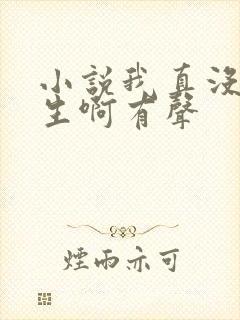 小說我真没
生啊有聲
煙雨亦可